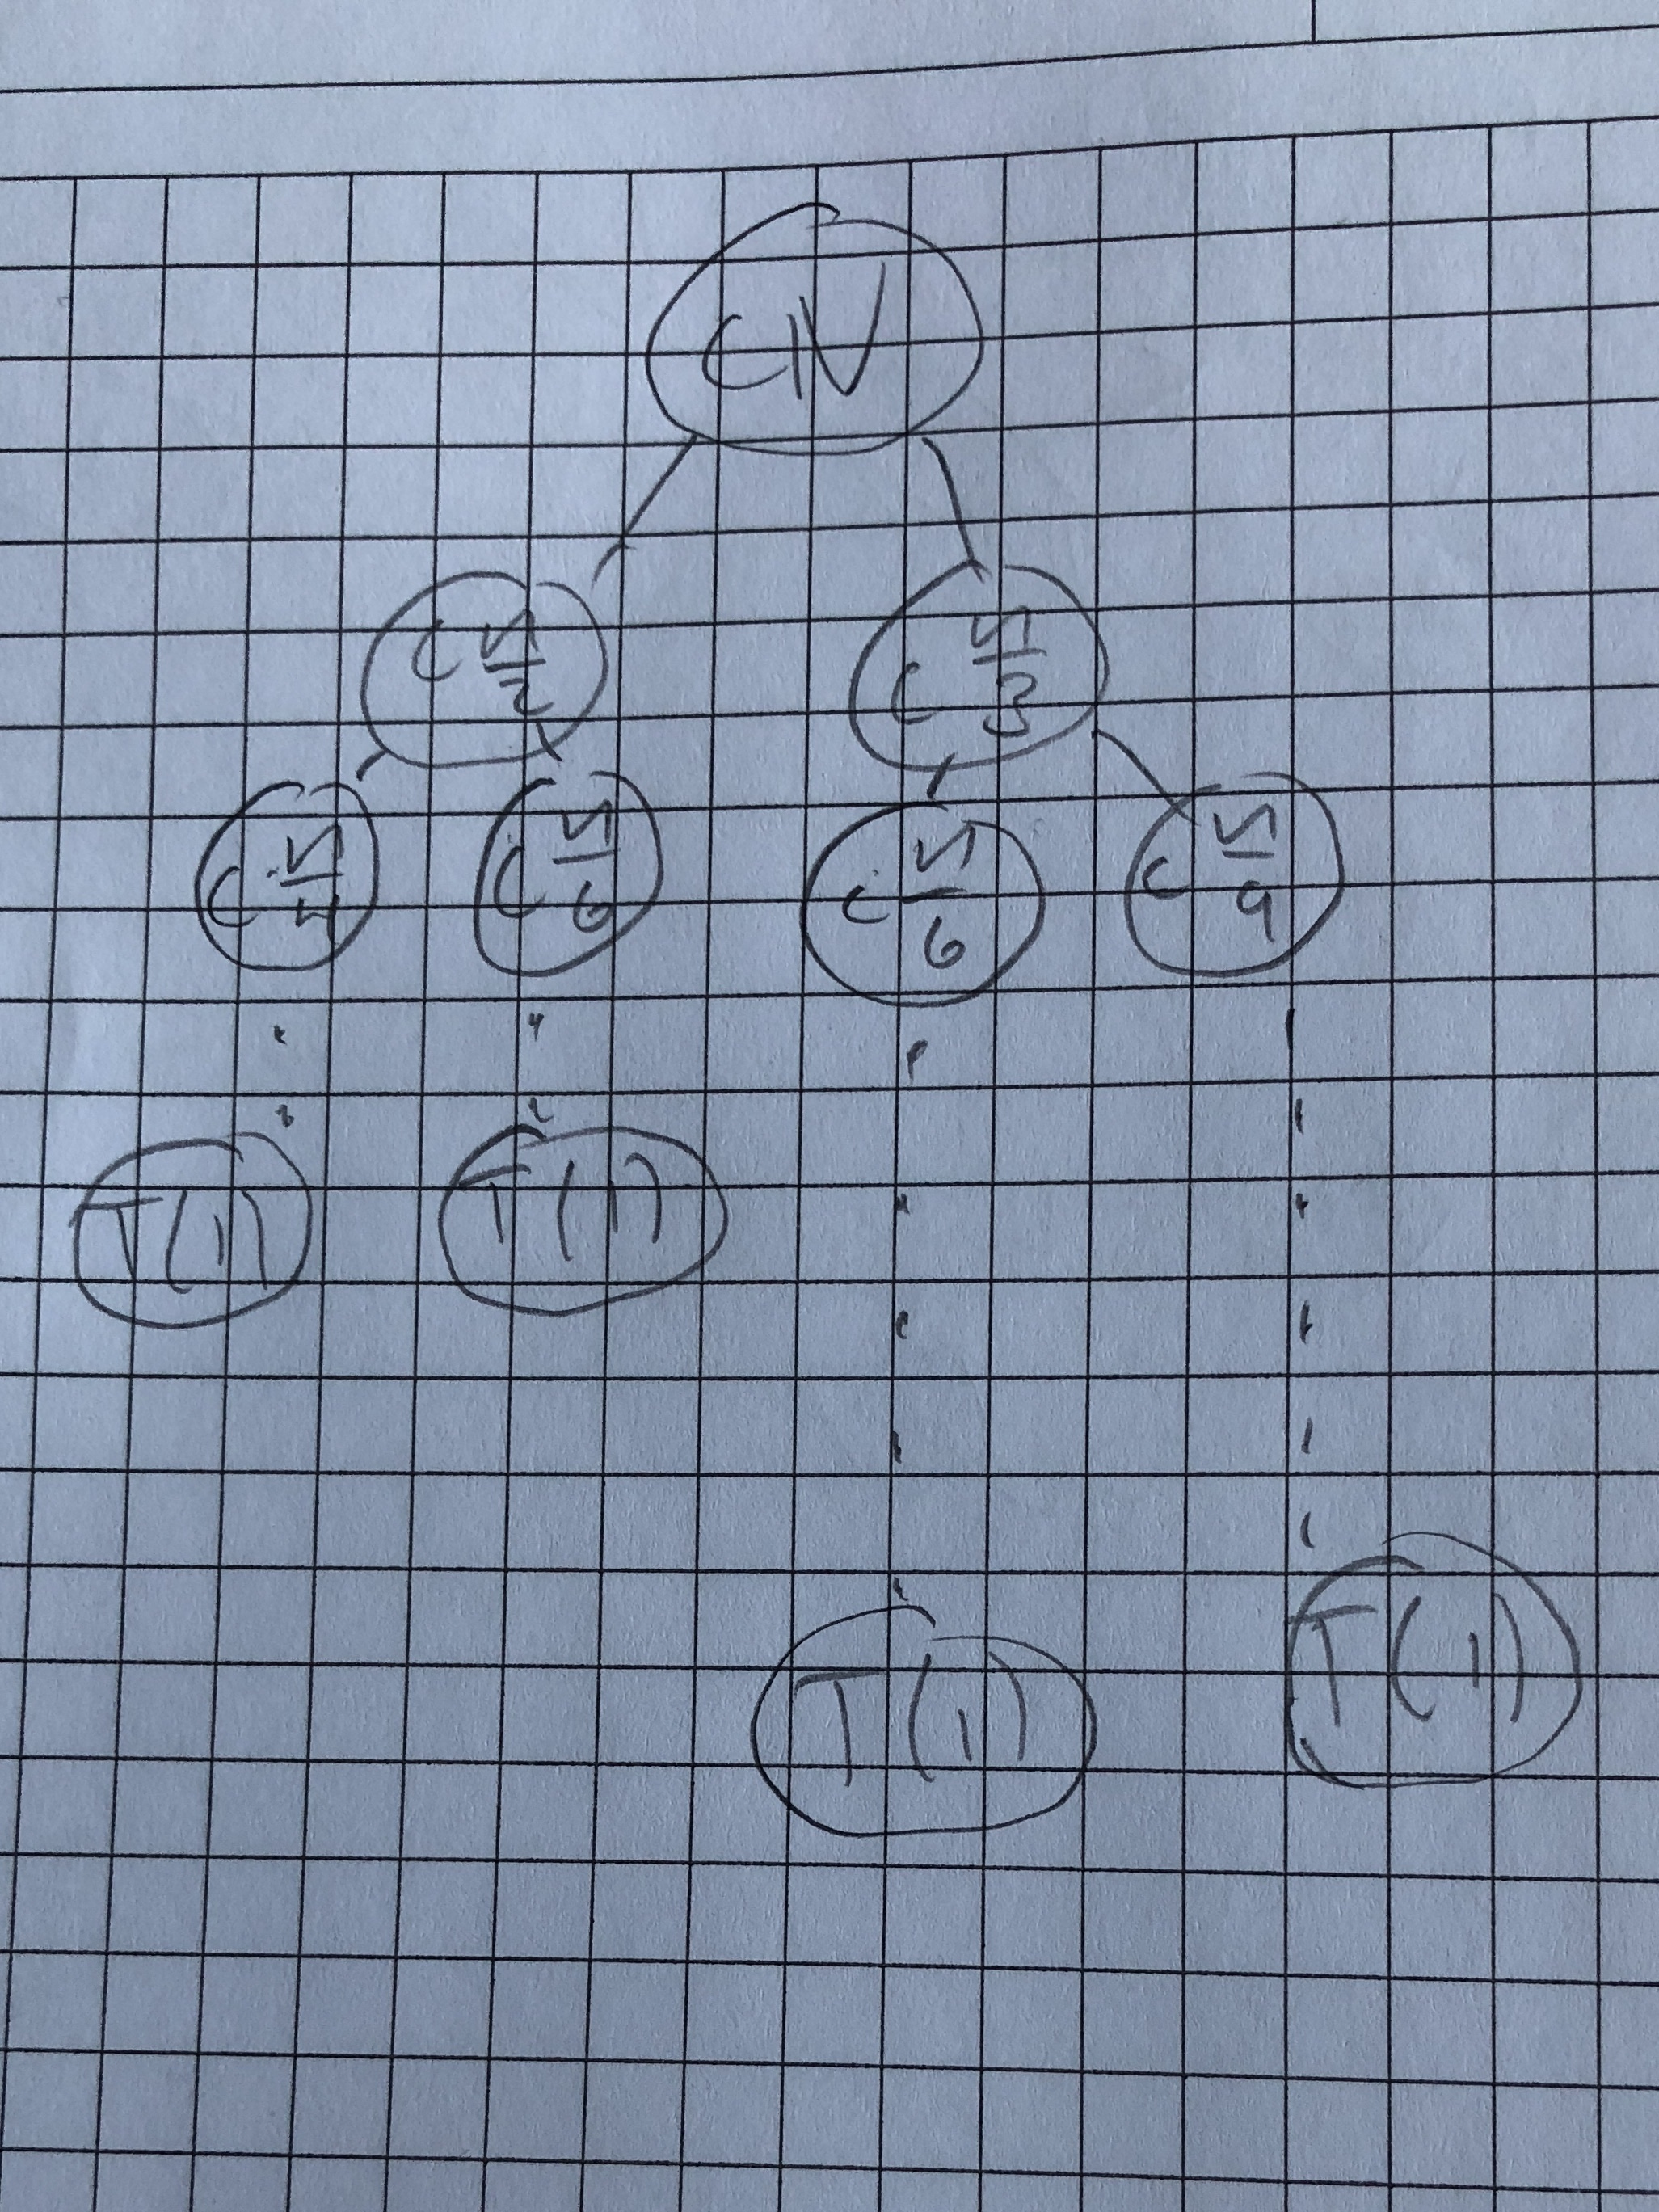 CN
C n/2 C n/3
C n/4 C n/6 C n/6 C n/9
T(1) T(1)
T(1) T(1)